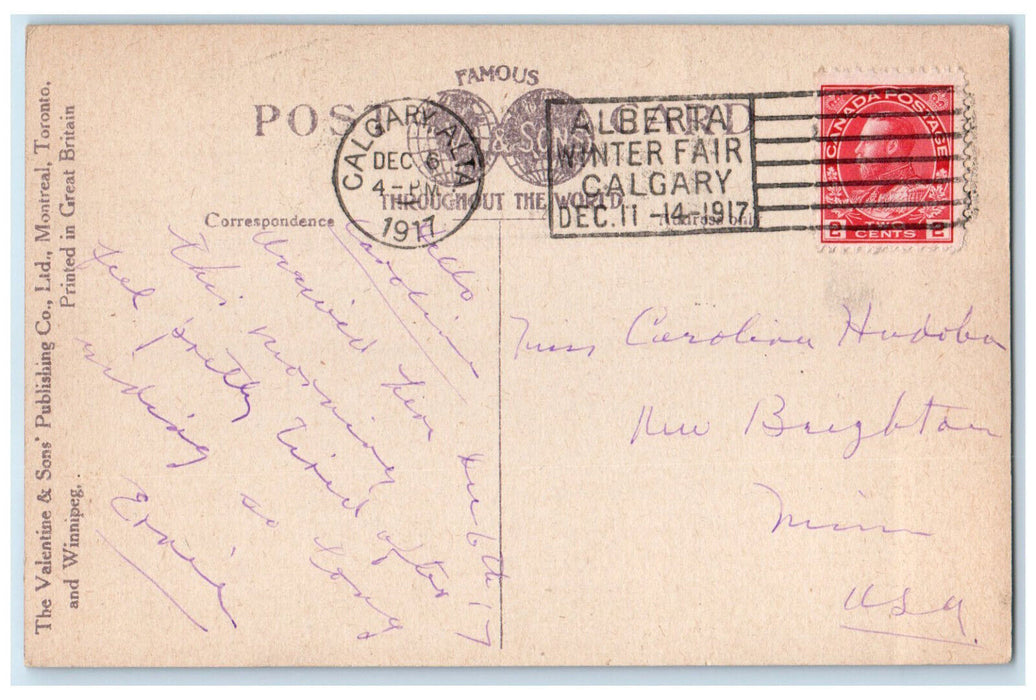 The Valentine & Sons' Publishing Co., Ltd., Montreal, Toronto,
and Winnipeg,.
Printed in Great Britain
FAMOUS
POST CARD
& SONS
THROUGHOUT THE WORLD
CALGARY, ALTA
DEC 6
4-PM
1917
ALBERTA
WINTER FAIR
CALGARY
DEC. 11-14-1917
CANADA POSTAGE
2 TWO CENTS 2
Correspondence
Dec 6th 17
Hello
Caroline
Arrived here
this morning
feel pretty tired after
riding so long
Ernie
Miss Carolina Hudoba
New Brighton
Minn
USA